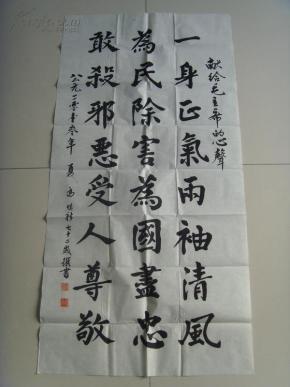 献给毛主席的心聲
一身正氣兩袖清風
為民除害為國盡忠
敢殺邪惡受人尊敬
公元二零零叁年 夏 七十二歲撰書